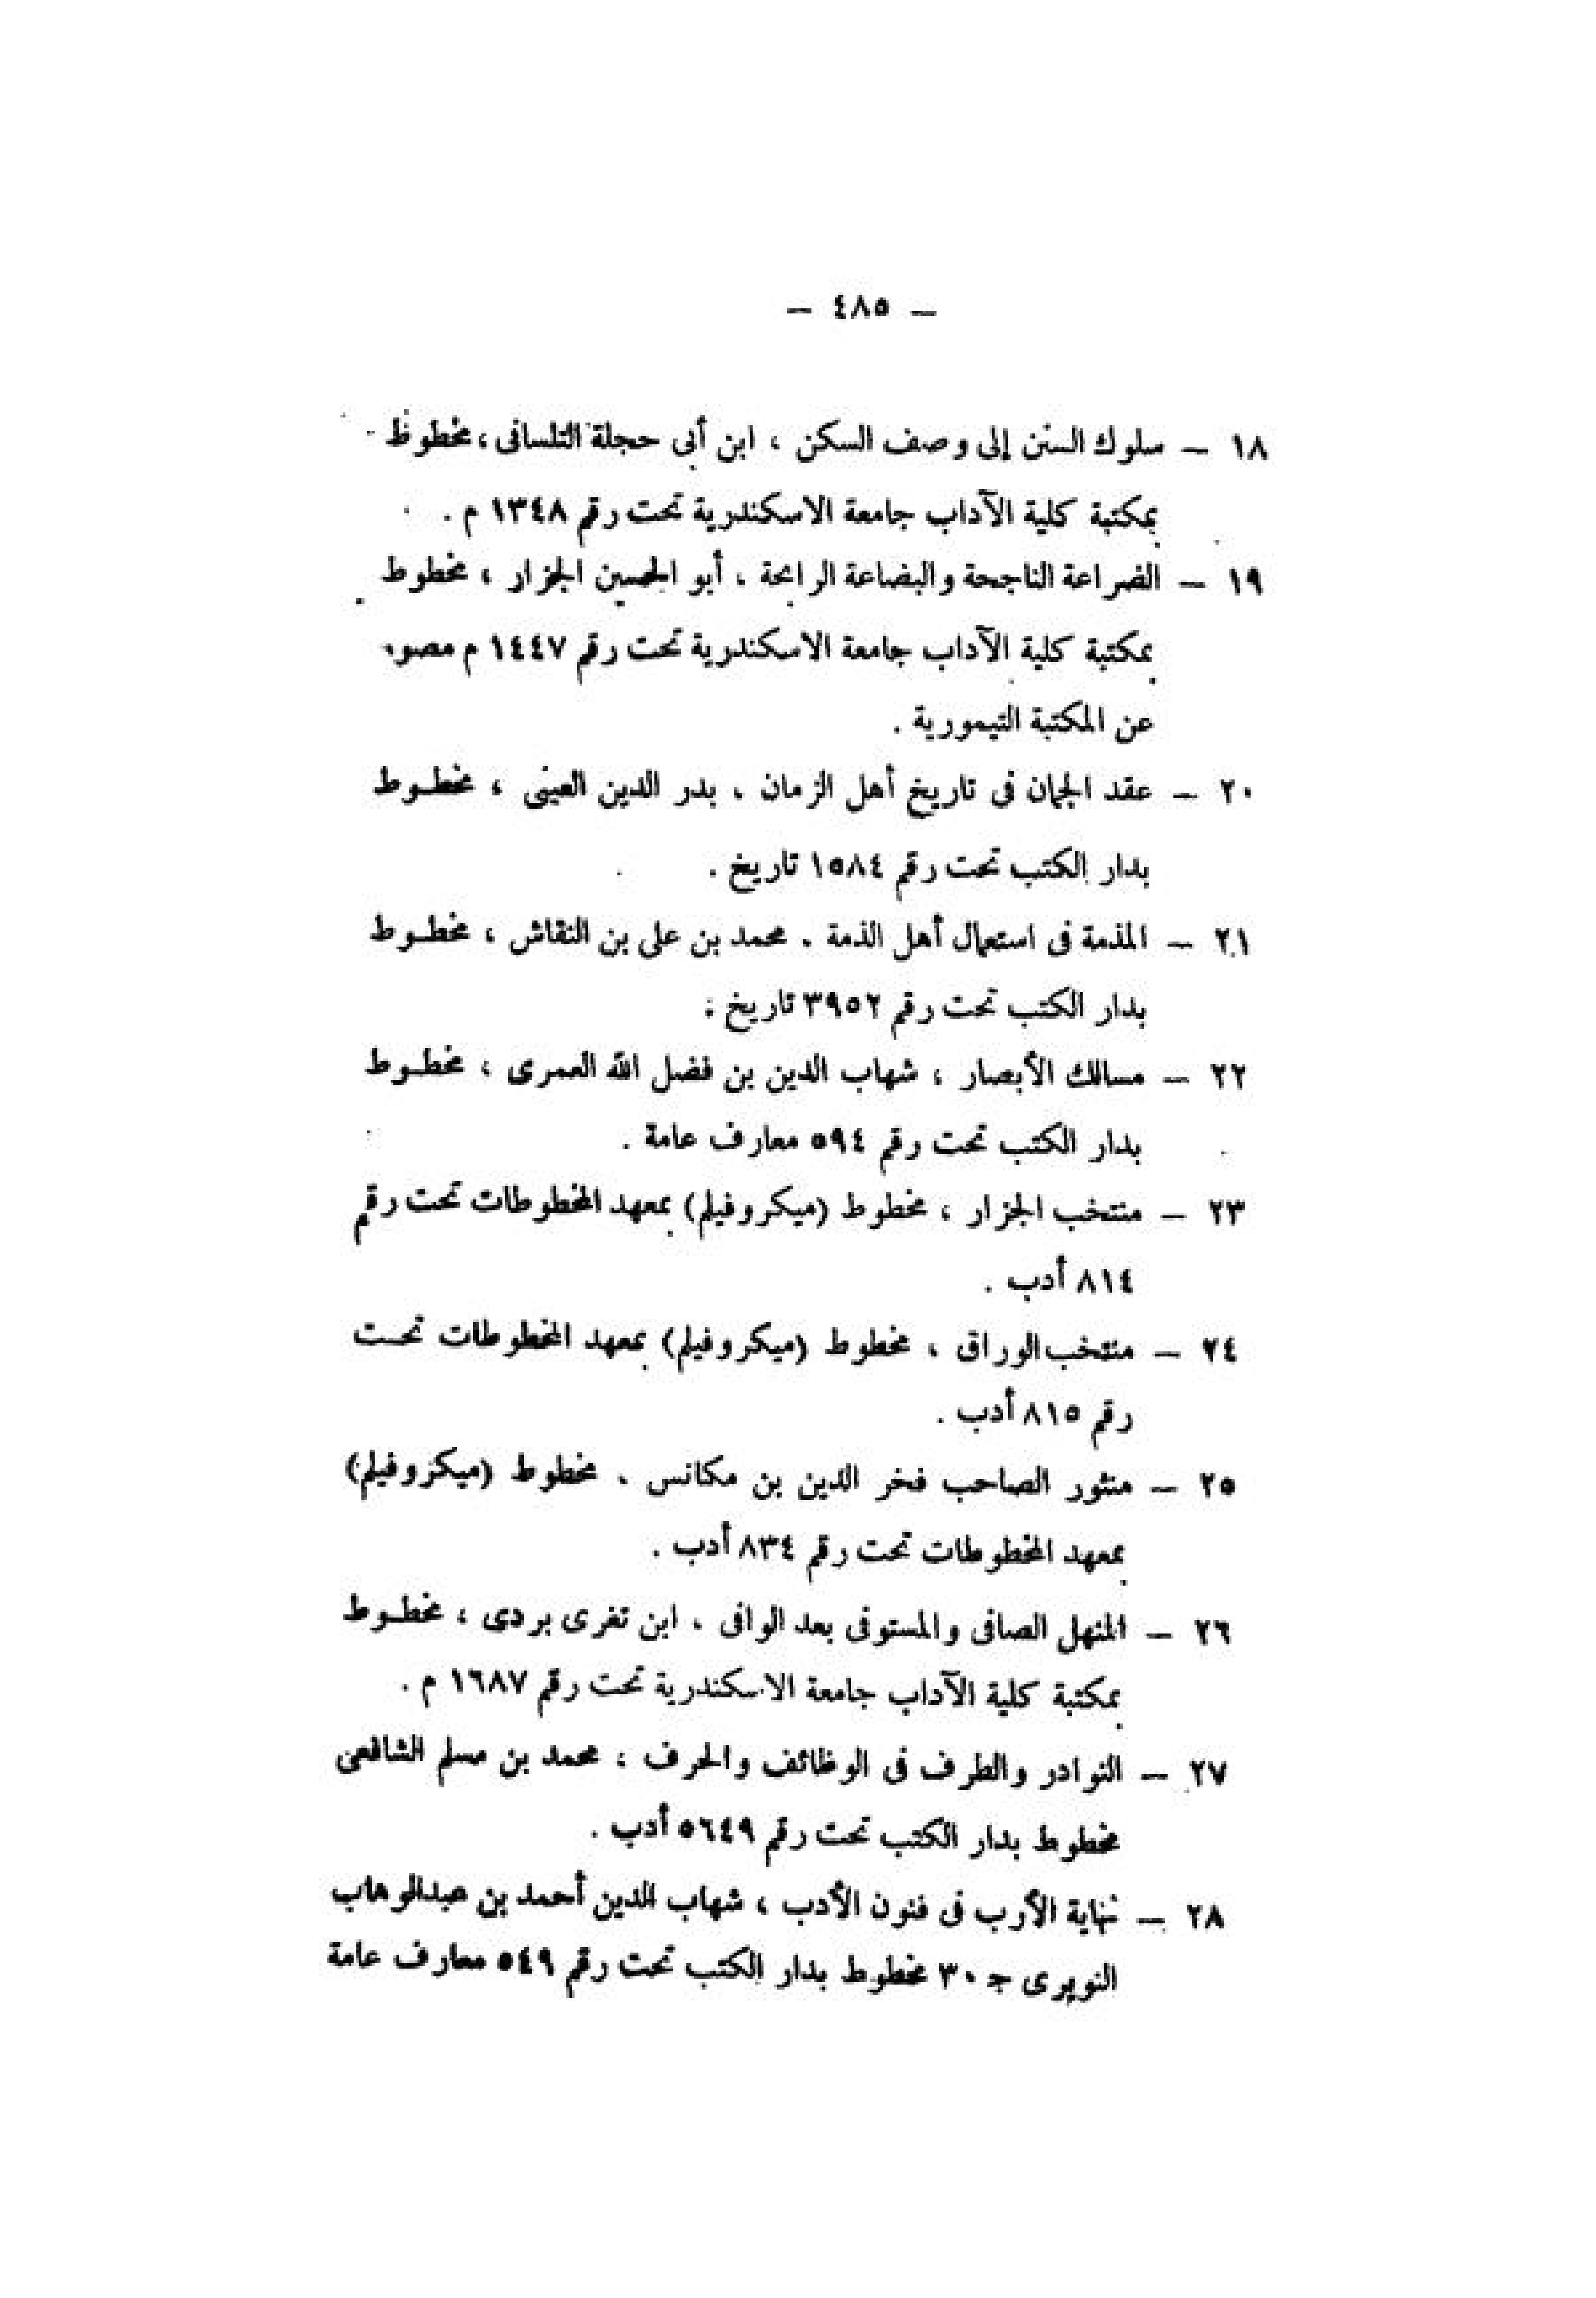 — ٤٨٥ —
١٨ — سلوك السنن إلى وصف السكن ، ابن أبى حجلة التلسانى ، مخطوط
بمكتبة كلية الآداب جامعة الاسكندرية تحت رقم ١٣٤٨ م .
١٩ — الضراعة الناجحة والبضاعة الرابحة ، أبو الحسين الجزار ، مخطوط
بمكتبة كلية الآداب جامعة الاسكندرية تحت رقم ١٤٤٧ م
عن المكتبة التيمورية .
٢٠ — عقد الجمان فى تاريخ أهل الزمان ، بدر الدين العينى ، مخطـوط
بدار الكتب تحت رقم ١٥٨٤ تاريخ .
٢١ — المذمة فى استعمال أهل الذمة . محمد بن على بن النقاش ، مخطـوط
بدار الكتب تحت رقم ٣٩٥٢ تاريخ .
٢٢ — مسالك الأبصار ، شهاب الدين بن فضل الله العمرى ، مخطـوط
بدار الكتب تحت رقم ٥٩٤ معارف عامة .
٢٣ — منتخب الجزار ، مخطوط (ميكروفيلم) بمعهد المخطوطات تحت رقم
٨١٤ أدب .
٢٤ — منتخب الوراق ، مخطوط (ميكروفيلم) بمعهد المخطوطات تحـت
رقم ٨١٥ أدب .
٢٥ — منثور الصاحب فخر الدين بن مكانس . مخطوط (ميكروفيلم)
بمعهد المخطوطات تحت رقم ٨٣٤ أدب .
٢٦ — المنهل الصافى والمستوفى بعد الوافى ، ابن تغرى بردى ، مخطـوط
بمكتبة كلية الآداب جامعة الاسكندرية تحت رقم ١٦٨٧ م .
٢٧ — النوادر والطرف فى الوظائف والحرف ، محمد بن مسلم الشافعى
مخطوط بدار الكتب تحت رقم ٥٦٤٩ أدب .
٢٨ — نهاية الأرب فى فنون الأدب ، شهاب الدين أحمد بن عبدالوهاب
النويرى ج ٣٠ مخطوط بدار الكتب تحت رقم ٥٤٩ معارف عامة